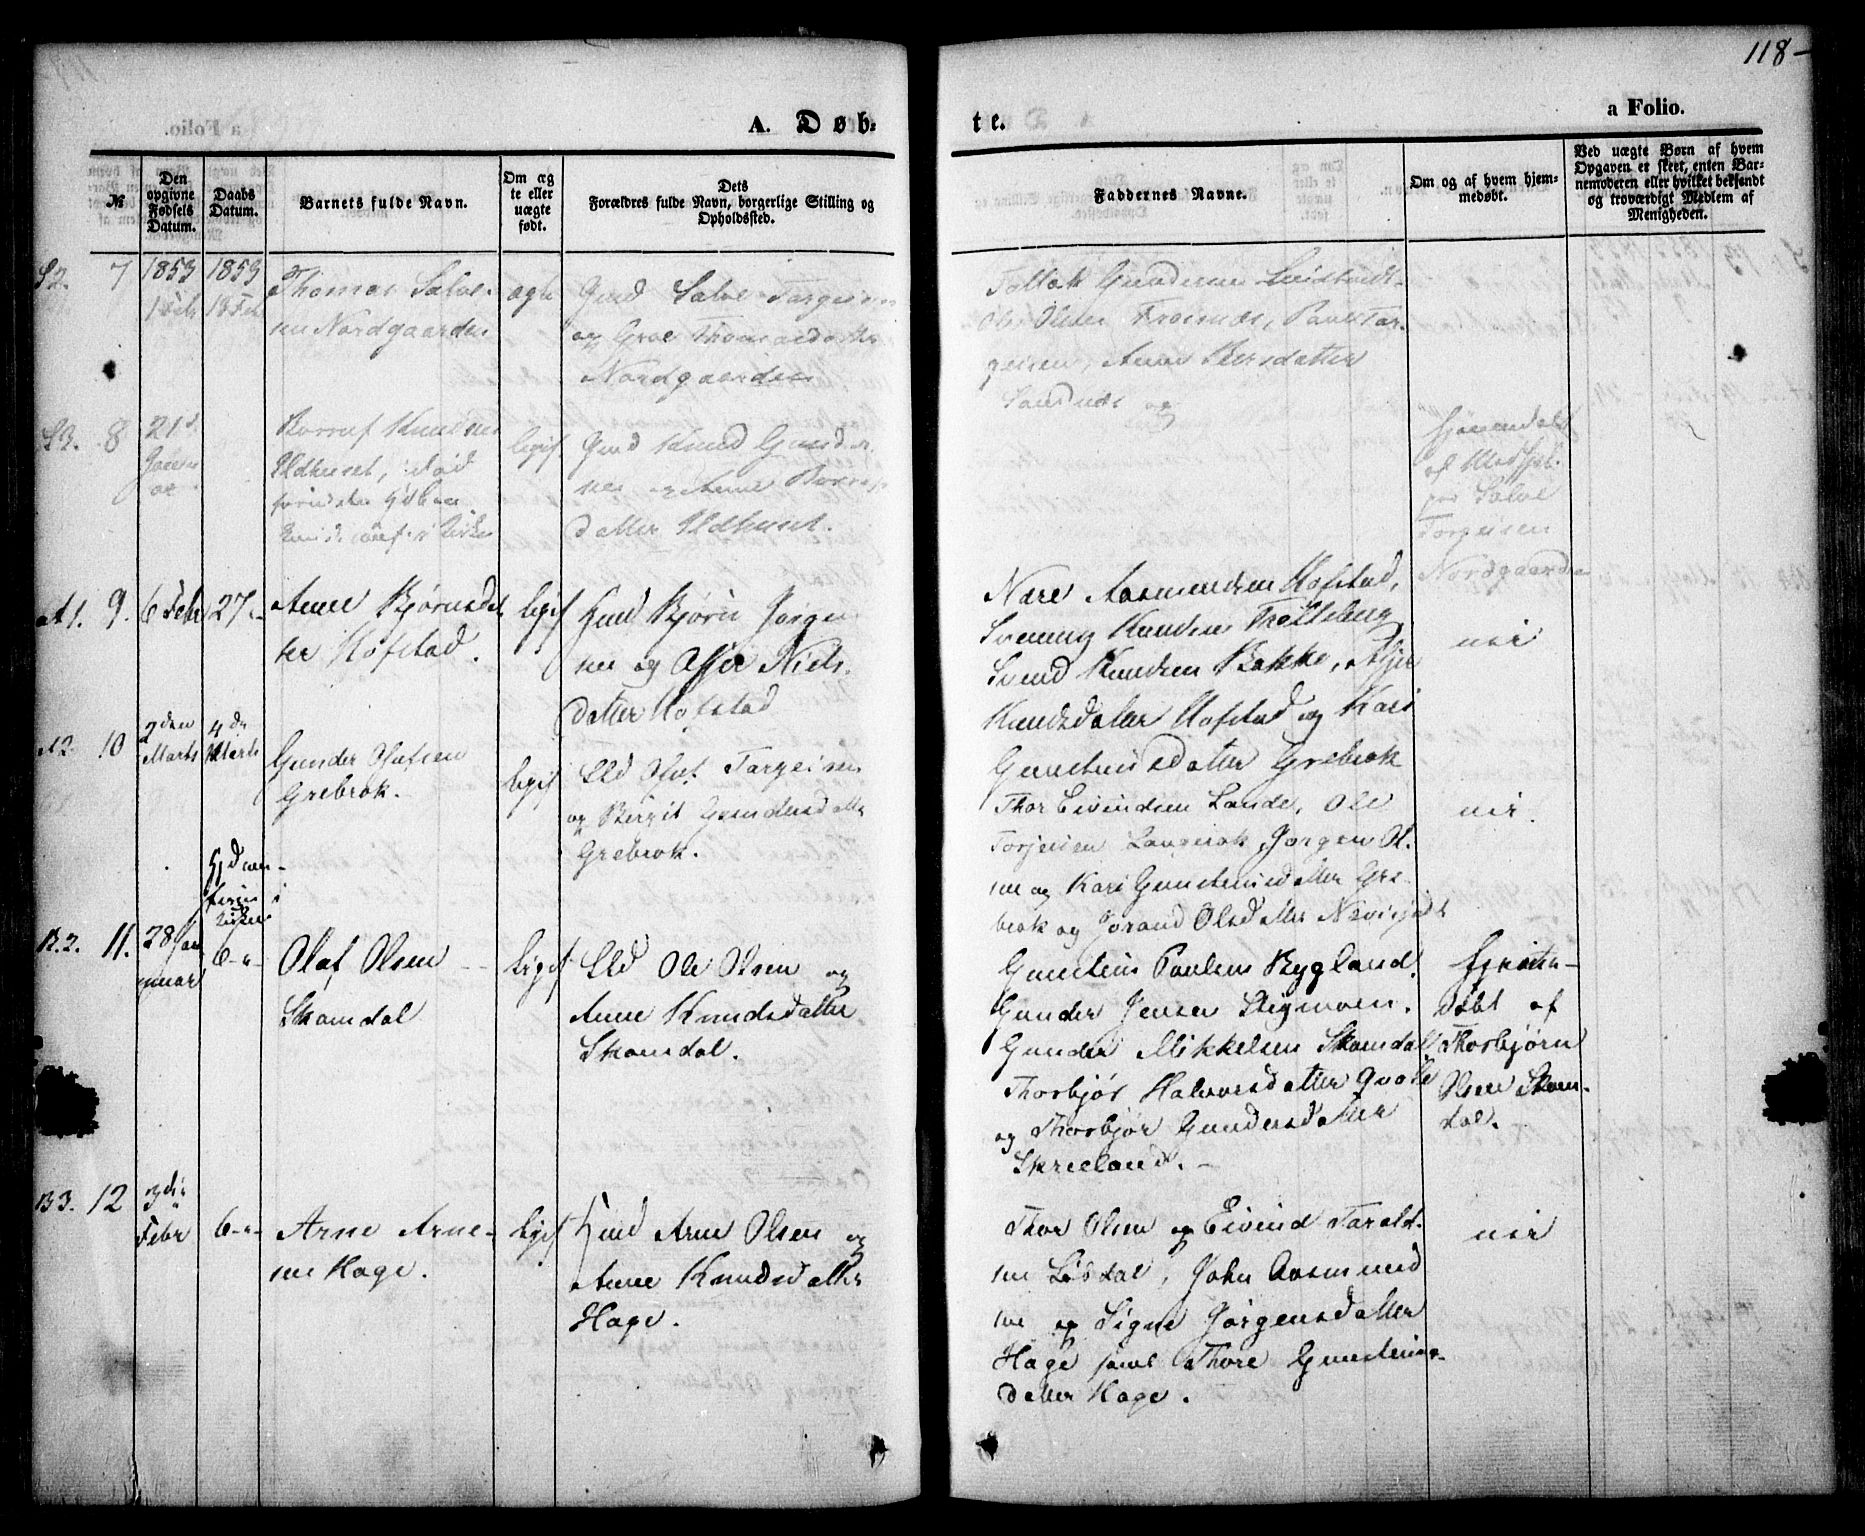 118-
A. Døb-
te.
a Folio.
№
Den opgivne Fødsels Datum.
Daabs Datum.
Barnets fulde Navn.
Om æg te eller uægte født.
Dets Forældres fulde Navn, borgerlige Stilling og Opholdssted.
Faddernes Navne.
Om og af hvem hjem- medøbt.
Ved uægte Børn af hvem Opgaven er skeet, enten Bar- nemoderen eller hvilket bekjendt og troværdigt Medlem af Menigheden.
S2. 7 1853 1853
Thomas Salve-
Nordgaarden
Gmd Salve Targeisen
og Groe Thomasdatter
Nordgaarden
Tallak Gundersen
Ole Olsen Frøisnæs, Paul Tar-
geisen, Anne Persdatter
Sandnæs og
S3. 8 21d
Januar
Knudsen
Ildhuset, død
legif
Gmd Knud Gunder
sen og Anne
datter Ildhuset.
Hjemmedøbt
af
Salve
Torgeisen
Nordgaarden
A1. 9. 6 Febr 27-
Anne Bjørnsdat
ter Hofstad.
legif
Gmd Bjørn Jørgen
sen og Asser Niels-
datter Hofstad
Nare Aasmundsen Hofstad,
Svenung Knudsen
Svend Knudsen Bakke,
Knudsdatter Hofstad og Kari
Gunsteinsdatter Grebrok
nei
A2. 10 2den Marts 4de Marts
Gunder Olufsen
Grebrok.
legif
Eld Oluf Targeisen
og Birgit Gundersdatter
Grebrok.
Thor Eivindsen Lande, Ole
Torjeisen Langerak, Jørgen Ol-
sen og Kari Gunsteinsdatter Gre-
brok og Jorand Olsdatter
nei.
B.2. 11. 28 Jan
nuar
6-"-
Olaf Olsen
Skomdal
legif
Eld Ole Olsen og
Anne Knudsdatter
Skomdal.
Gunstein Paulsen Bygland.
Gunder Jensen Stigmoen.
Gunder Mikkelsen Skomdal
Thorbjør Halvorsdatter Qvaale
og Thorbjør Gundersdatter
Skreeland. -
døbt af
Thorbjørn
Olsen Skom-
dal.
B3. 12 3die
Febr
6-"-
Arne Arne-
sen Hage.
legif
Gmd Arne Olsen og
Anne Knudsdatter
Hage.
Thor Olsen og Eivind Tarald-
sen Løsdal, John Aasmund
sen og Signe Jørgensdatter
Hage samt Thore Gunsteins-
datter Hage.
nei